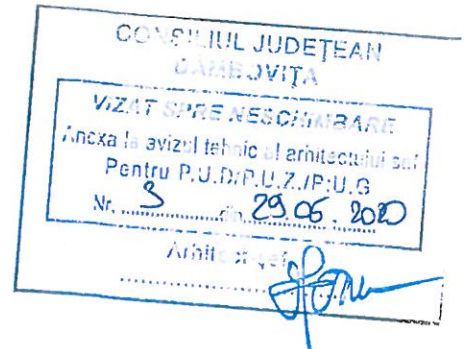 CONSILIUL JUDEȚEAN
DAMBOVIȚA
VIZAT SPRE NESCHIMBARE
Anexa la avizul tehnic al arhitectului șef
Pentru P.U.D/P.U.Z./P.U.G
Nr. 3 din 29.06.2020
Arhitect-șef